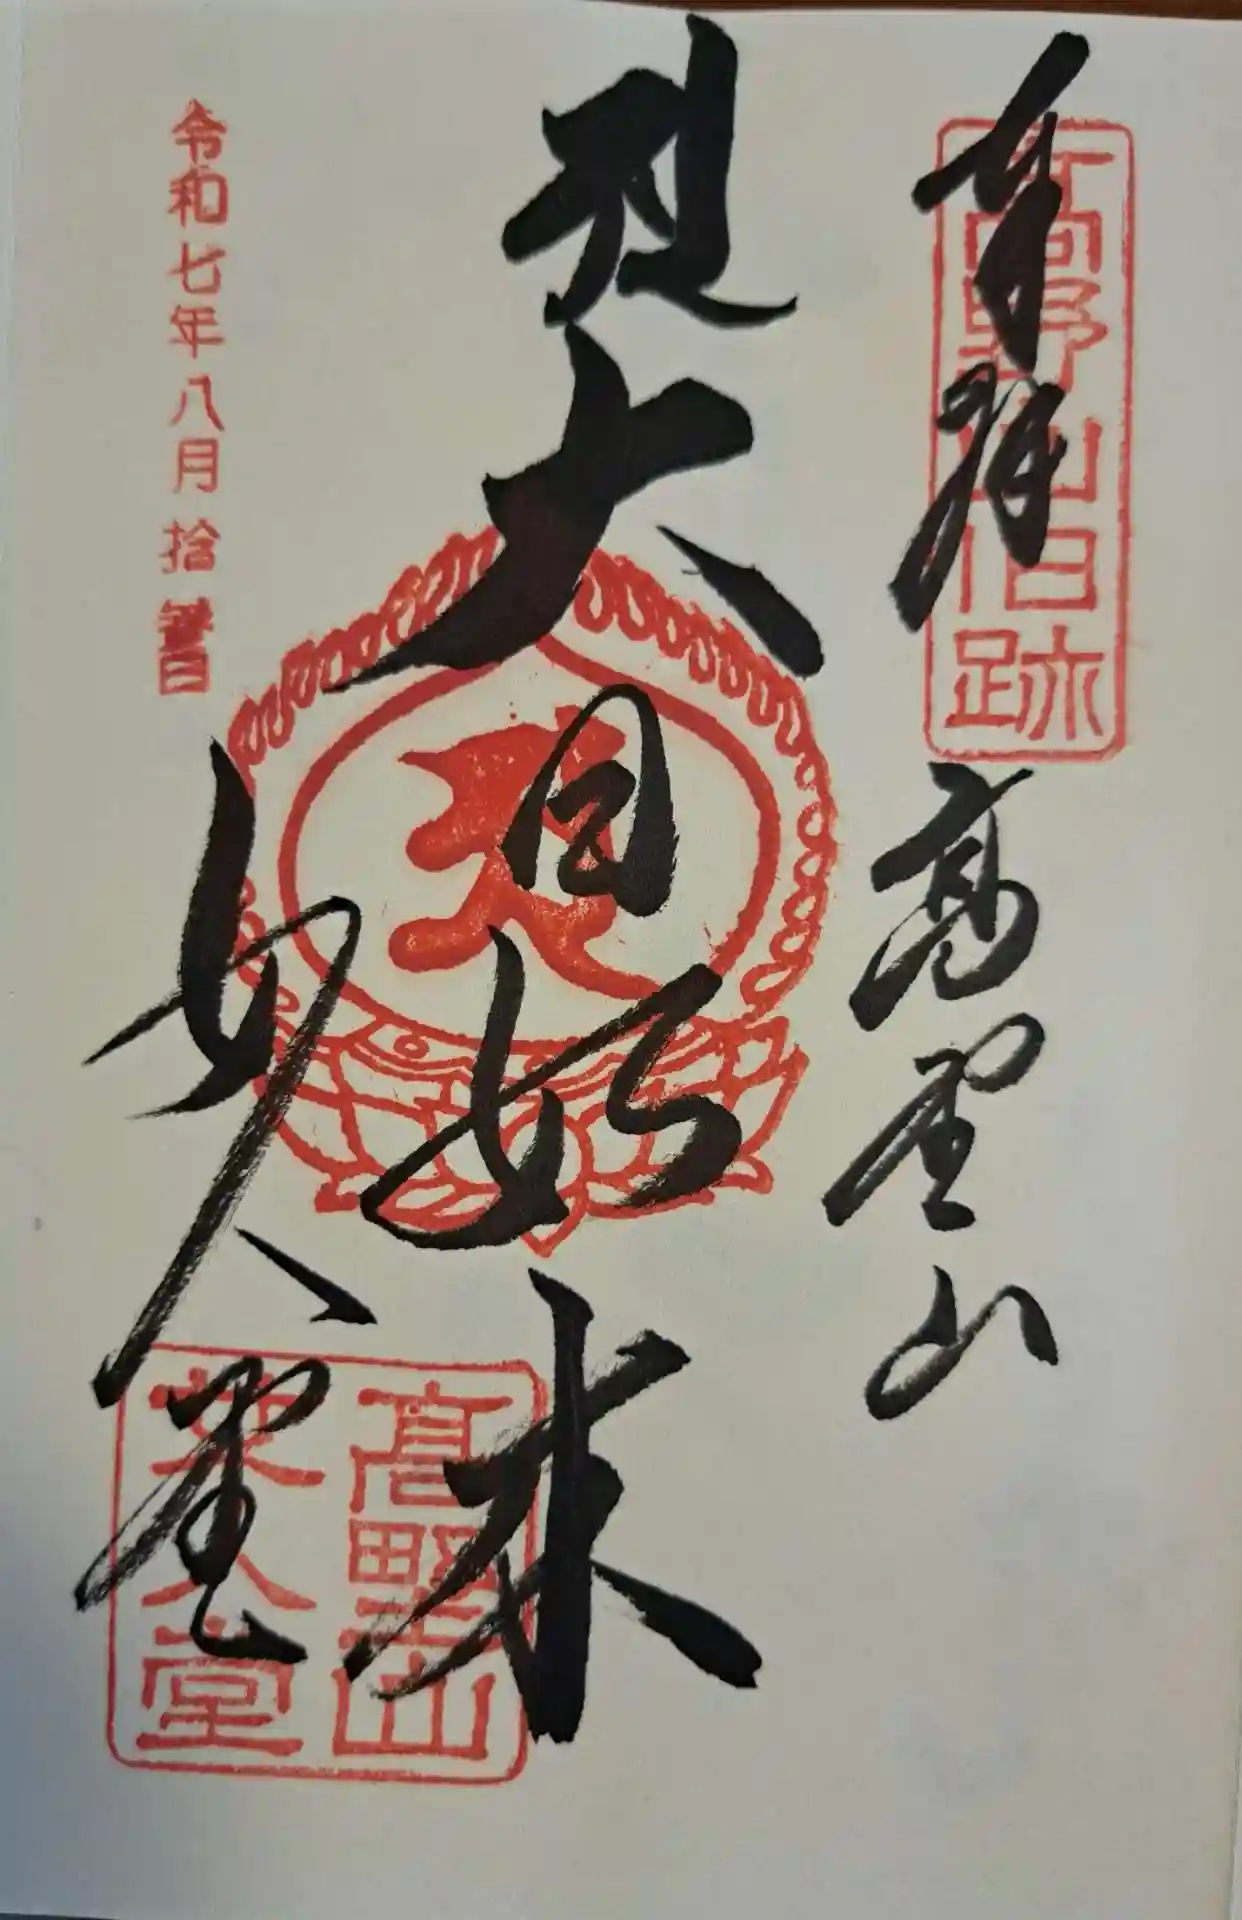 奉拝
高野山
高野山旧跡
大日如来
女人堂
令和七年八月拾
高野山
女人堂